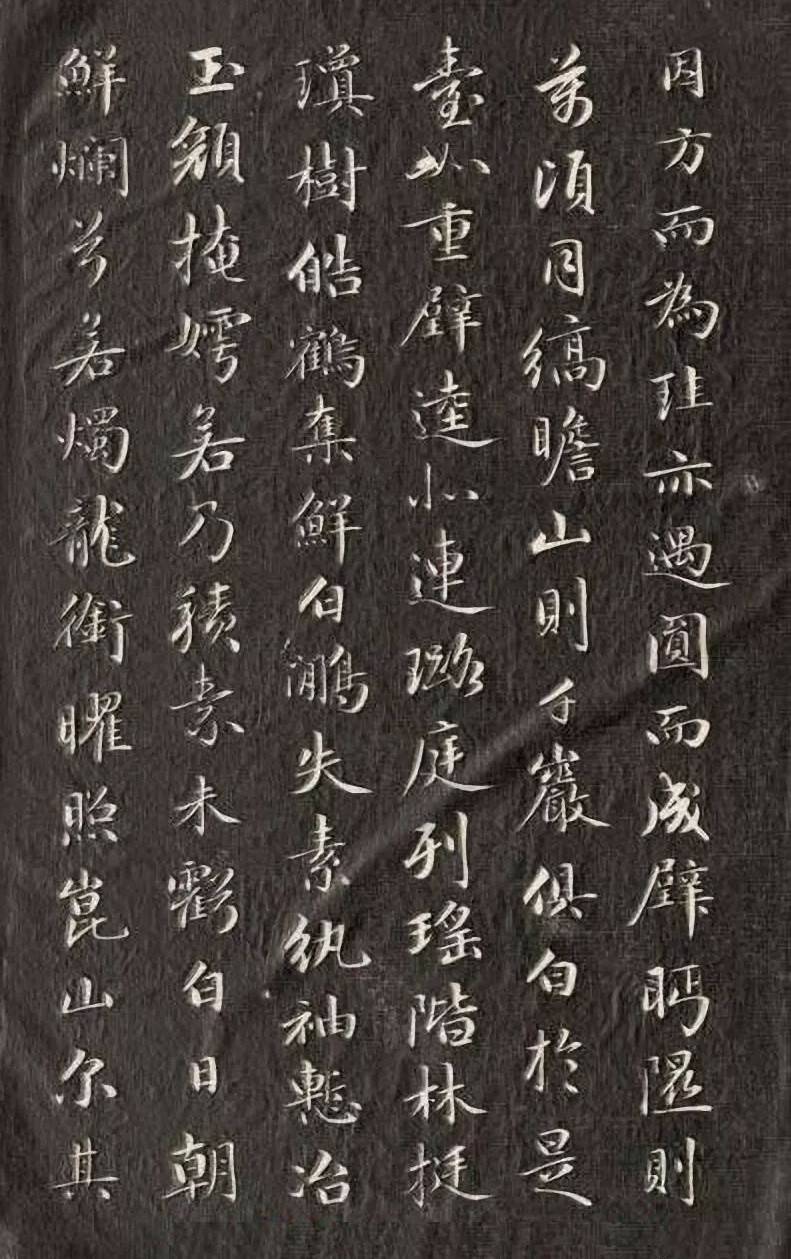 因方而為珪亦遇圓而成璧眄隰則
萬頃同縞瞻山則千巖俱白於是
臺如重璧逵似連璐庭列瑤階林挺
瓊樹皓鶴奪鮮白鷴失素紈袖慙冶
玉顏掩嫮若乃積素未虧白日朝
鮮爛兮若燭龍銜曜照崑山尔其